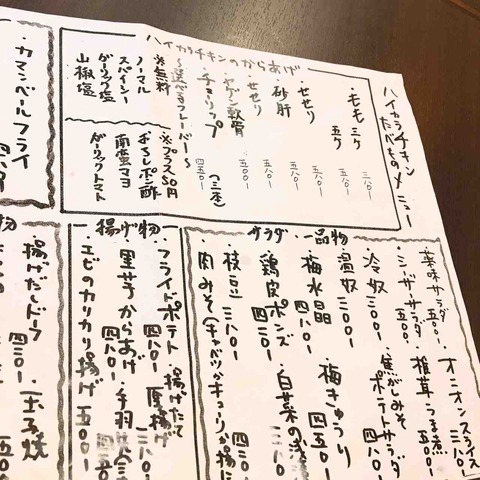 ハイカラチキン
たべものメニュー
ハイカラチキンのからあげ
・もも三ヶ 三八〇一
五ヶ 五八〇一
・せせり 五八〇一
・砂肝 五八〇一
・せせり 五〇〇一
・ヤゲン軟骨 五〇〇一
・チューリップ (三本) 四五〇一
〜選べるフレーバー〜
※無料
ノーマル
スパイシー
ガーリック塩
山椒塩
※プラス50円
おろしポン酢
南蛮マヨ
ガーリックトマト
・カマンベールフライ
サラダ 一品物
薬味サラダ 五〇〇一
・シーザーサラダ 五八〇一
・冷奴 三〇〇一
・温奴 三〇〇一
・梅水晶 四八〇一
・鶏皮ポンズ 四三〇一
・枝豆 三八〇一
・肉みそ(キャベツかキョーリか
オニオンスライス 三八〇一
・椎茸うま煮
・焦がしみそ
ポテトサラダ
・梅きゅうり 四五〇一
・白菜の浅漬
揚げ物
・フライドポテト 四八〇一
・里芋からあげ 四八〇一
・エビのカリカリ揚げ 五〇〇一
揚げたて
厚揚げ 三八〇一
・手羽
物
・揚げだしドーフ 四三〇一
・玉子焼